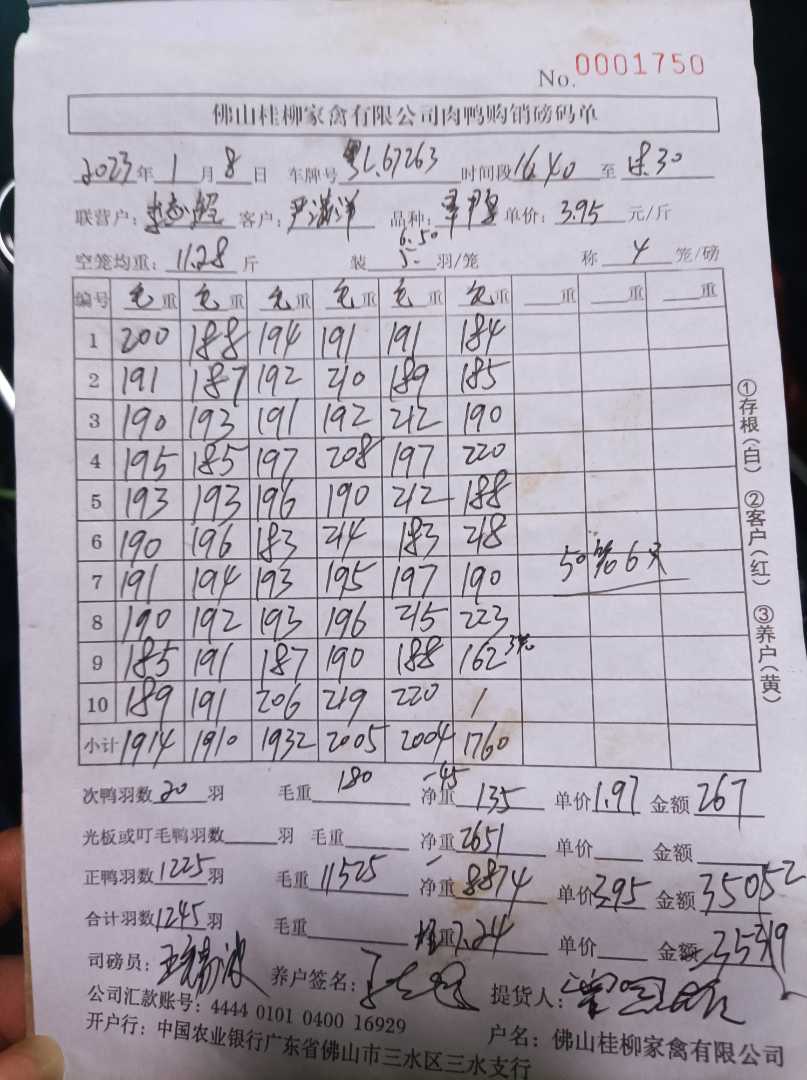 No. 0001750
佛山桂柳家禽有限公司肉鸭购销磅码单
2023年1月8日 车牌号 粤L.67263 时间段 16.40 至 30
联营户: 客户: 品种: 单价: 3.95 元/斤
空笼均重: 11.28 斤 装 6. 50 5. 羽/笼 称 4 笼/磅
编号 毛重 毛重 毛重 毛重 毛重 毛重 重 重 重
1 200 188 194 191 191 184
2 191 187 192 210 189 185
3 190 193 191 192 212 190
4 195 185 197 208 197 220
5 193 193 196 190 212 188
6 190 196 183 214 183 218
7 191 194 193 195 197 190
8 190 192 193 196 215 223
9 185 191 187 190 188 162
10 189 191 206 219 220 /
小计 1914 1910 1932 2005 2004 1760
次鸭羽数 20 羽 毛重 180 净重 -45 135 单价 1.97 金额 267
光板或叮毛鸭羽数 羽 毛重 净重 2651 单价 金额
正鸭羽数 1225 羽 毛重 11525 净重 8874 单价 3.95 金额 35052
合计羽数 1245 羽 毛重 重 7.24 单价 金额 35319
司磅员: 养户签名: 提货人:
公司汇款账号: 4444 0101 0400 16929
开户行: 中国农业银行广东省佛山市三水区三水支行 户名: 佛山桂柳家禽有限公司
①存根(白) ②客户(红) ③养户(黄)